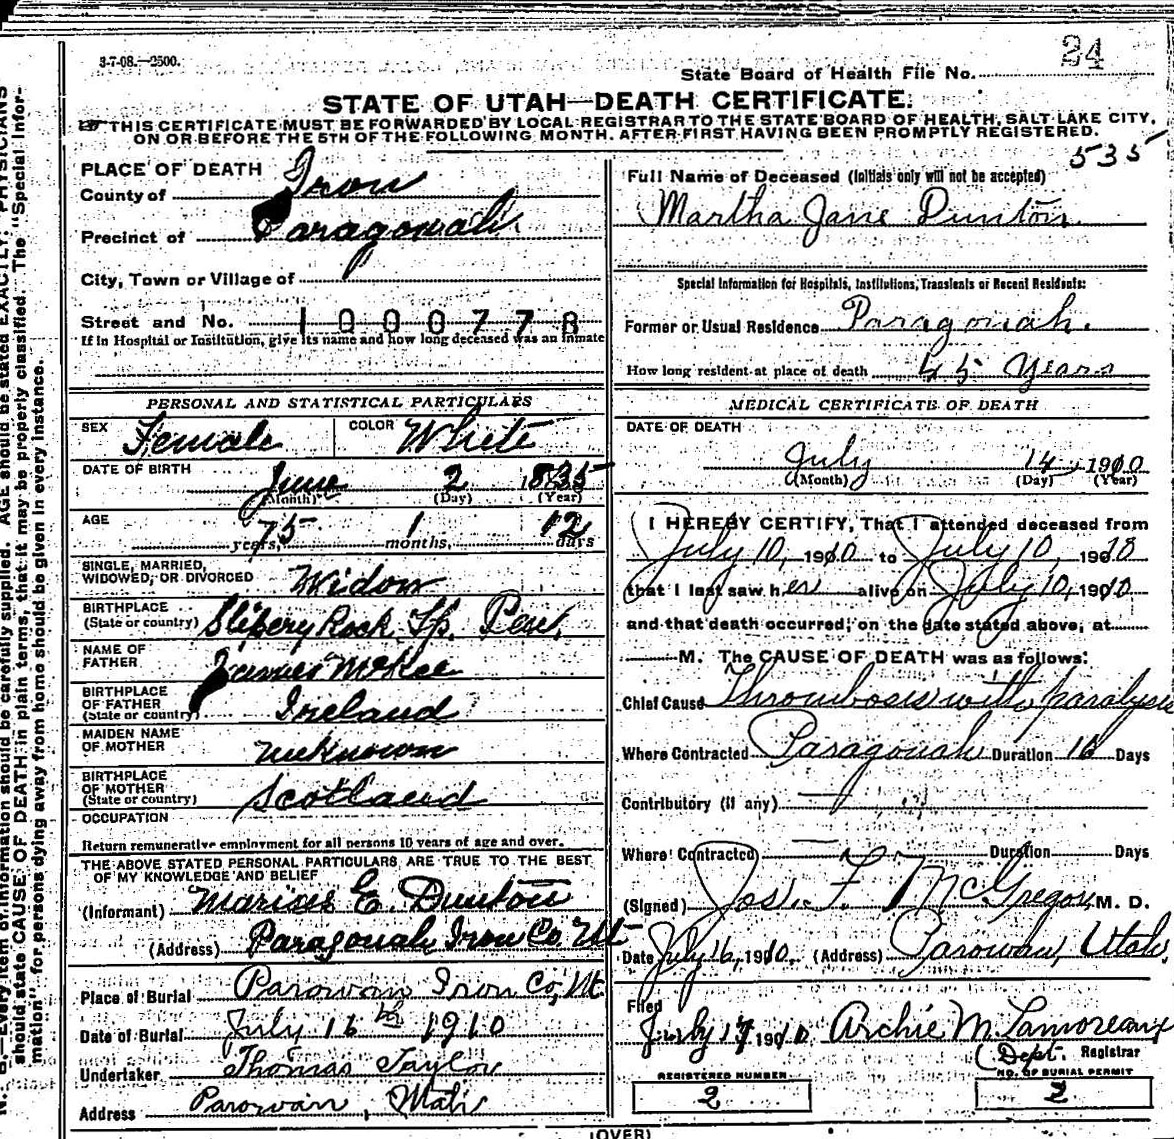 3-7-08.—2500.
24
State Board of Health File No.
STATE OF UTAH—DEATH CERTIFICATE.
THIS CERTIFICATE MUST BE FORWARDED BY LOCAL REGISTRAR TO THE STATE BOARD OF HEALTH, SALT LAKE CITY,
ON OR BEFORE THE 5TH OF THE FOLLOWING MONTH. AFTER FIRST HAVING BEEN PROMPTLY REGISTERED.
535
PLACE OF DEATH
County of Iron
Precinct of Paragonah
City, Town or Village of
Street and No. 1000778
If in Hospital or Institution, give its name and how long deceased was an inmate
PERSONAL AND STATISTICAL PARTICULARS
SEX Female COLOR White
DATE OF BIRTH June 2 1835
(Month) (Day) (Year)
AGE 75 years, 1 months, 12 days
SINGLE, MARRIED,
WIDOWED, OR DIVORCED Widow
BIRTHPLACE
(State or country) Slipery Rock Tp. Pen.
NAME OF
FATHER James McKee
BIRTHPLACE
OF FATHER
(State or country) Ireland
MAIDEN NAME
OF MOTHER unknown
BIRTHPLACE
OF MOTHER
(State or country) Scotland
OCCUPATION
Return remunerative employment for all persons 10 years of age and over.
THE ABOVE STATED PERSONAL PARTICULARS ARE TRUE TO THE BEST
OF MY KNOWLEDGE AND BELIEF
(Informant) Marius E. Dunton
(Address) Paragonah Iron Co Ut
Place of Burial Parowan Iron Co, Ut
Date of Burial July 16th 1910
Undertaker Thomas Taylor
Address Parowan, Utah
Full Name of Deceased (Initials only will not be accepted)
Martha Jane Dunton
Special Information for Hospitals, Institutions, Transients or Recent Residents:
Former or Usual Residence Paragonah.
How long resident at place of death 45 Years
MEDICAL CERTIFICATE OF DEATH
DATE OF DEATH
July 14, 1910
(Month) (Day) (Year)
I HEREBY CERTIFY, That I attended deceased from
July 10, 1910 to July 10, 1910
that I last saw her alive on July 10, 1910
and that death occurred, on the date stated above, at
M. The CAUSE OF DEATH was as follows:
Chief Cause Thrombosis with paralysis
Where Contracted Paragonah Duration 16 Days
Contributory (if any)
Where Contracted Duration Days
(Signed) Jos. F. McGregor, M. D.
Date July 16, 1910. (Address) Parowan, Utah
Filed
July 17 1910 Archie M. Lamoreaux
(Dept. Registrar
REGISTERED NUMBER
2
NO. OF BURIAL PERMIT
2
(OVER)
N. B.—Every item of information should be carefully supplied. AGE should be stated EXACTLY. PHYSICIANS
should state CAUSE OF DEATH in plain terms, that it may be properly classified. The "Special Infor-
mation" for persons dying away from home should be given in every instance.